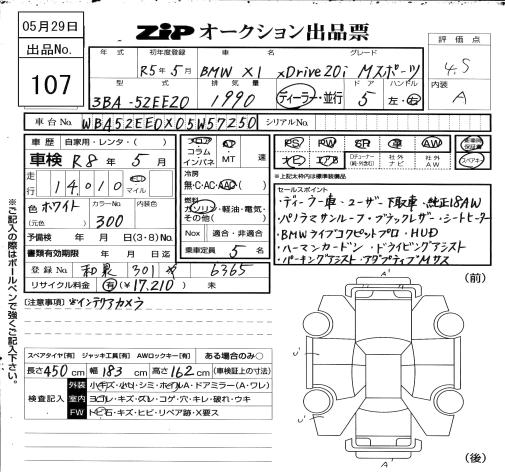 05月29日
ZIP オークション出品票
出品No.
107
年式 初年度登録 車名 グレード
R5年5月 BMW X1 xDrive20i Mスポーツ
評価点
4.5
型式 排気量 ドア ハンドル
3BA-52EE20 1990 ディーラー・並行 5 左・右
内装
A
車台No. WBA52EE0X05W57250 シリアルNo.
車歴 自家用・レンタ・( )
車検 R8年5月
コラム
インパネ
MT 速
PS PW SR 革 AW
ナビ エアB
社外ナビ 社外AW
保証書
スペアキー
走行 14,010 km マイル
冷房
無・C・AC・AAC
※上記太枠内は標準装備品
色 ホワイト カラーNo. 内装色
(元色) 300
燃料
ガソリン・軽油・電気・
その他( )
セールスポイント
ディーラー車・ユーザー下取車・純正18AW
パノラマサンルーフ・ブラックレザー・シートヒーター
BMWライブコクピットプロ・HUD
ハーマンカードン・ドライビングアシスト
パーキングアシスト・アダプティブMサス
予備検 年 月 日(3・8)No.
Nox 適合・非適合
書類有効期限 年 月 日
乗車定員 5 名
登録No. 和泉 301 や 6365
リサイクル料金 有(¥17,210) 未
(注意事項) ※インテリアカメラ
(前)
スペアタイヤ[有] ジャッキ工具[有] AWロックキー[有] ある場合のみ○
長さ450cm 幅183cm 高さ162cm (車検証上の寸法)
検査記入
外装 小キズ・小凹・シミ・ホイルA・ドアミラー(A・ワレ)
室内 ヨゴレ・キズ・スレ・コゲ・穴・キレ・破れ・ウキ
FW トビ石・キズ・ヒビ・リペア跡・X要ス
A'
U'
U'
A'
(後)
◇ご記入の際はボールペンで強くご記入下さい。